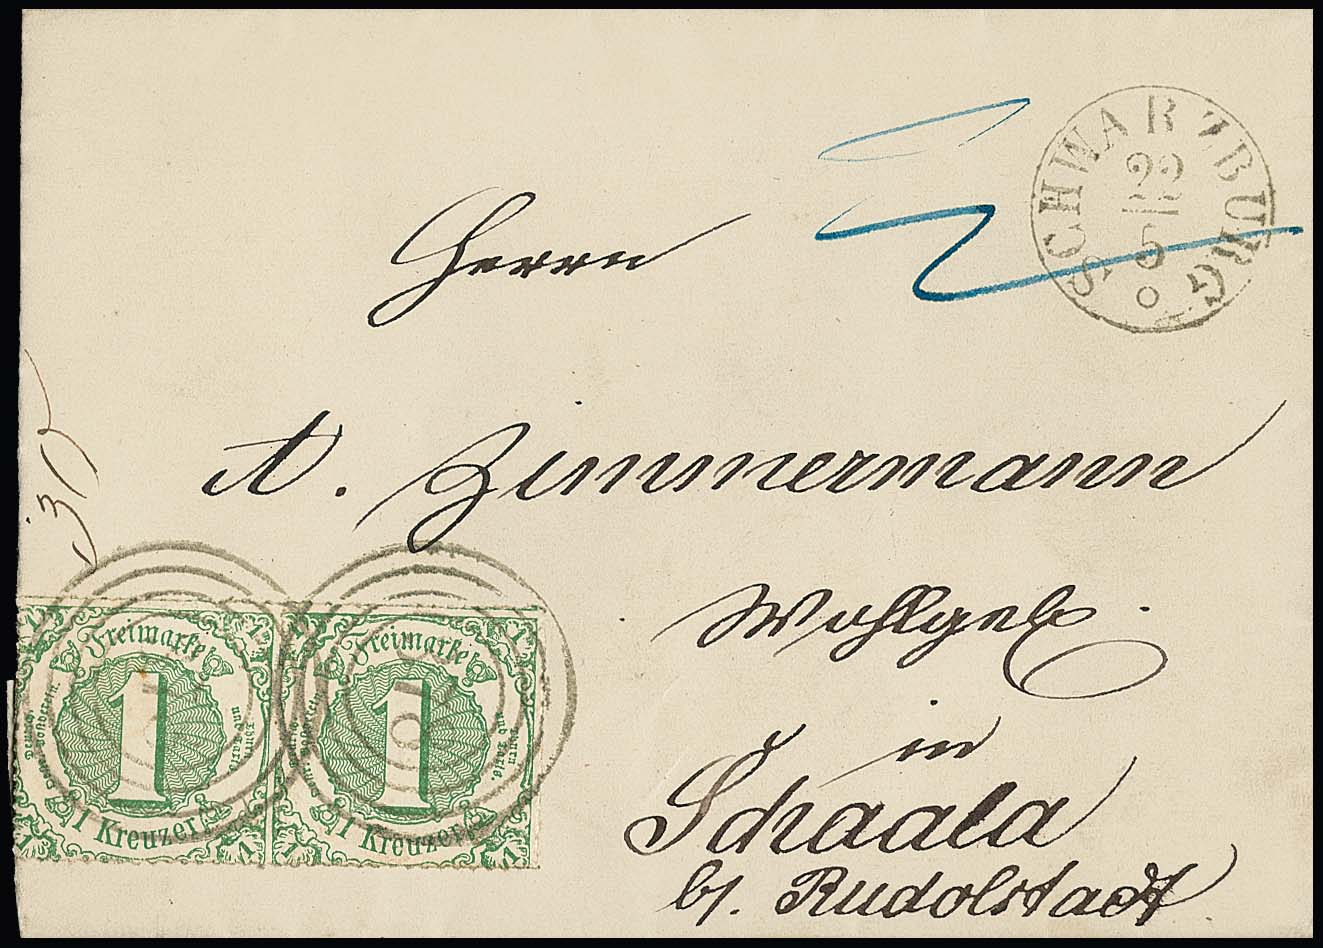 SCHWARZBURG
22
5
Herrn
A. Zimmermann
Wohlgeb.
in
Schaala
b/. Rudolstadt
Freimarke
1
1 Kreuzer
Freimarke
1
1 Kreuzer